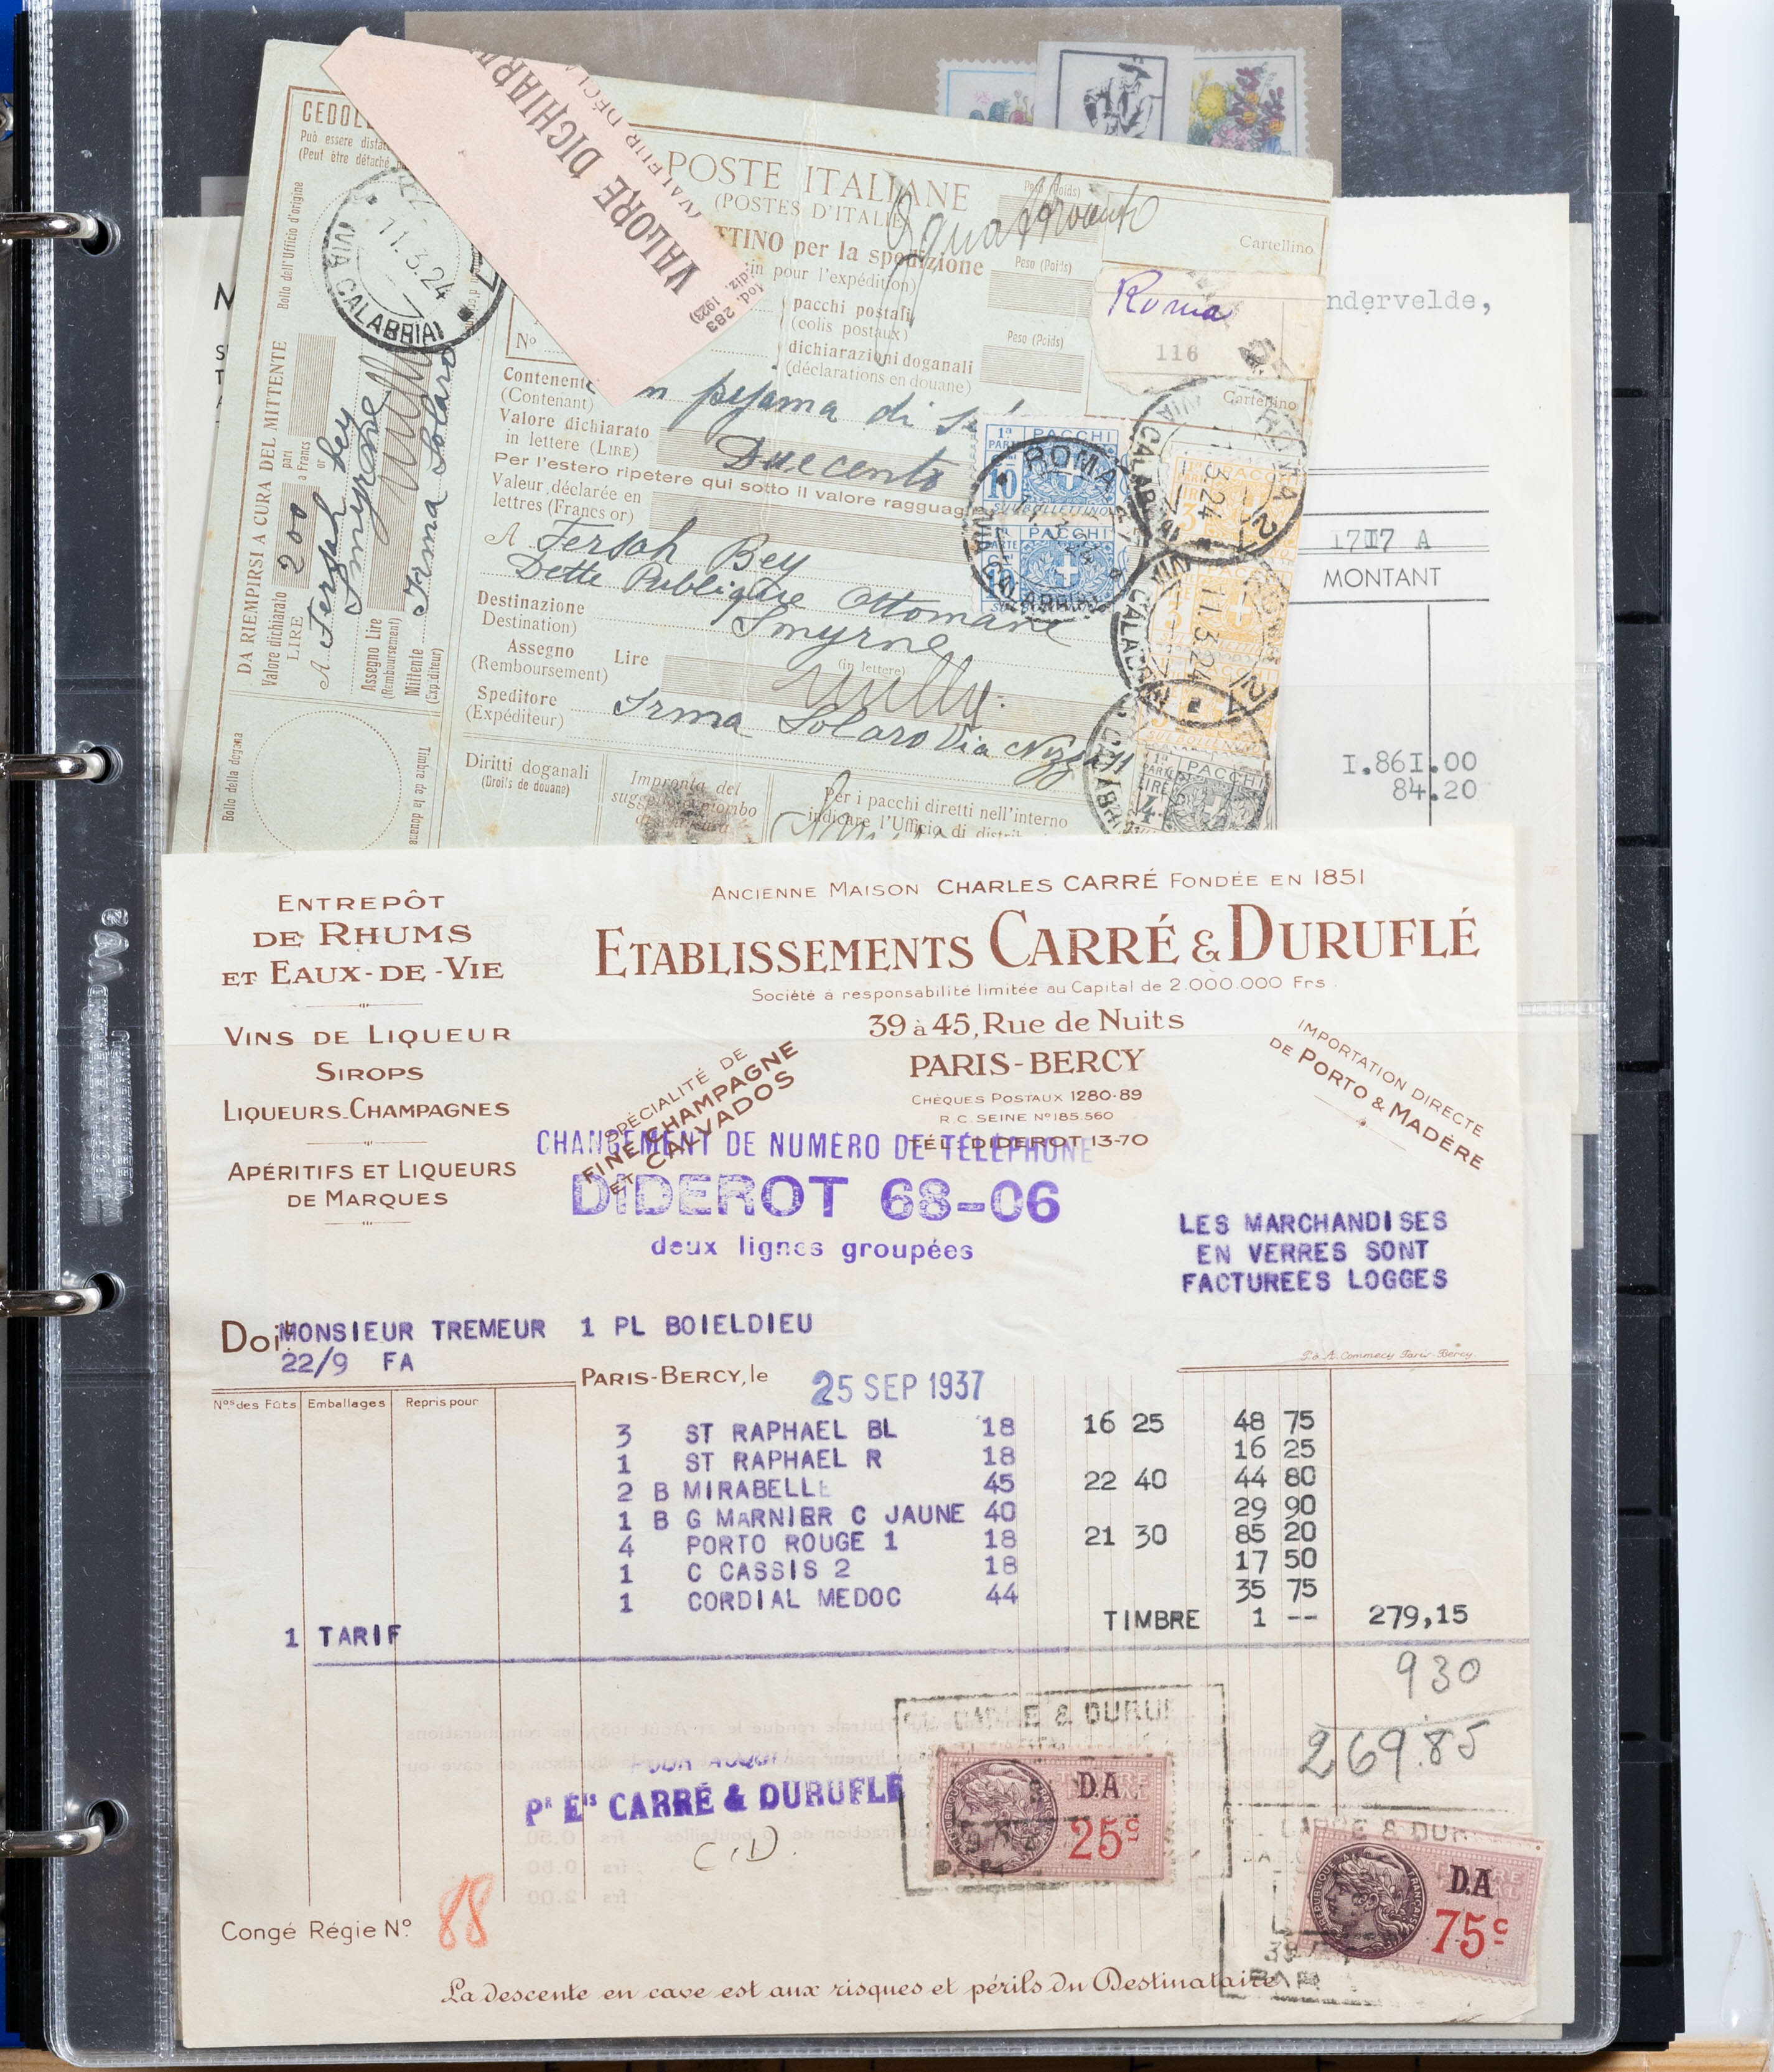 CEDOL
Può essere distac
(Peut être détaché
Bollo dell'Ufficio d'origine
11.3.24
(VIA CALABRIA)
VALORE DICHIAR
(VALEUR DÉCL
POSTE ITALIANE
(POSTES D'ITALIE
TTINO per la spedizione
in pour l'expédition)
pacchi postali,
(colis postaux)
dichiarazioni doganali
(déclarations en douane)
283
1923)
No
Peso (Poids)
Peso (Poids)
Peso (Poids)
Cartellino
Roma
116
Cartellino
DA RIEMPIRSI A CURA DEL MITTENTE
Valore dichiarato
LIRE 200
pari a Francs or
A Fersah bey
Smyrne
Assegno Lire
(Remboursement)
Mittente
(Expéditeur)
Irma Solaro
Bollo della dogana
Timbre de la douane
Contenente
(Contenant)
n pejama di
Valore dichiarato
in lettere (LIRE)
Duecento
Per l'estero ripetere qui sotto il valore ragguag
Valeur déclarée en
lettres (Francs or)
A Fersah Bey
Dette Publique Ottomane
Destinazione
Destination)
Smyrne
Assegno
(Remboursement)
Lire
(in lettere)
Speditore
(Expéditeur)
Irma Solaro Via Nizza 11
Diritti doganali
(Droits de douane)
Impronta del
Per i pacchi diretti nell'interno
indicare l'Ufficio di distrib
1a PARTE PACCHI
10
SUL BOLLETTINO
PACCHI
ROMA
11.3.24
PACCHI
LIRE
4
ndervelde,
1717 A
MONTANT
1.861.00
84.20
ENTREPÔT
DE RHUMS
ET EAUX-DE-VIE
VINS DE LIQUEUR
SIROPS
LIQUEURS-CHAMPAGNES
APÉRITIFS ET LIQUEURS
DE MARQUES
ANCIENNE MAISON CHARLES CARRÉ FONDÉE EN 1851
ETABLISSEMENTS CARRÉ & DURUFLÉ
Société à responsabilité limitée au Capital de 2.000.000 Frs.
39 à 45, Rue de Nuits
PARIS-BERCY
CHÈQUES POSTAUX 1280-89
R.C. SEINE No 185.560
TÉL: DIDEROT 13-70
SPÉCIALITÉ DE
FINE CHAMPAGNE
ET CALVADOS
IMPORTATION DIRECTE
DE PORTO & MADÈRE
CHANGEMENT DE NUMERO DE TÉLÉPHONE
DIDEROT 68-06
deux lignes groupées
LES MARCHANDISES
EN VERRES SONT
FACTUREES LOGGES
Doit MONSIEUR TREMEUR 1 PL BOIELDIEU
22/9 FA
P. & A. Commecy Paris-Bercy.
PARIS-BERCY, le 25 SEP 1937
Nos des Fûts Emballages Repris pour
3 ST RAPHAEL BL 18 16 25 48 75
1 ST RAPHAEL R 18 16 25
2 B MIRABELLE 45 22 40 44 80
1 B G MARNIER C JAUNE 40 29 90
4 PORTO ROUGE 1 18 21 30 85 20
1 C CASSIS 2 18 17 50
1 CORDIAL MEDOC 44 35 75
TIMBRE 1 -- 279,15
1 TARIF
930
269.85
CARRE & DURUF
POUR ACQUI
Pr Ets CARRÉ & DURUFLE
C.D.
D.A
25c
CARRE & DUR
D.A
75c
Congé Régie No. 88
La descente en cave est aux risques et périls du Destinataire